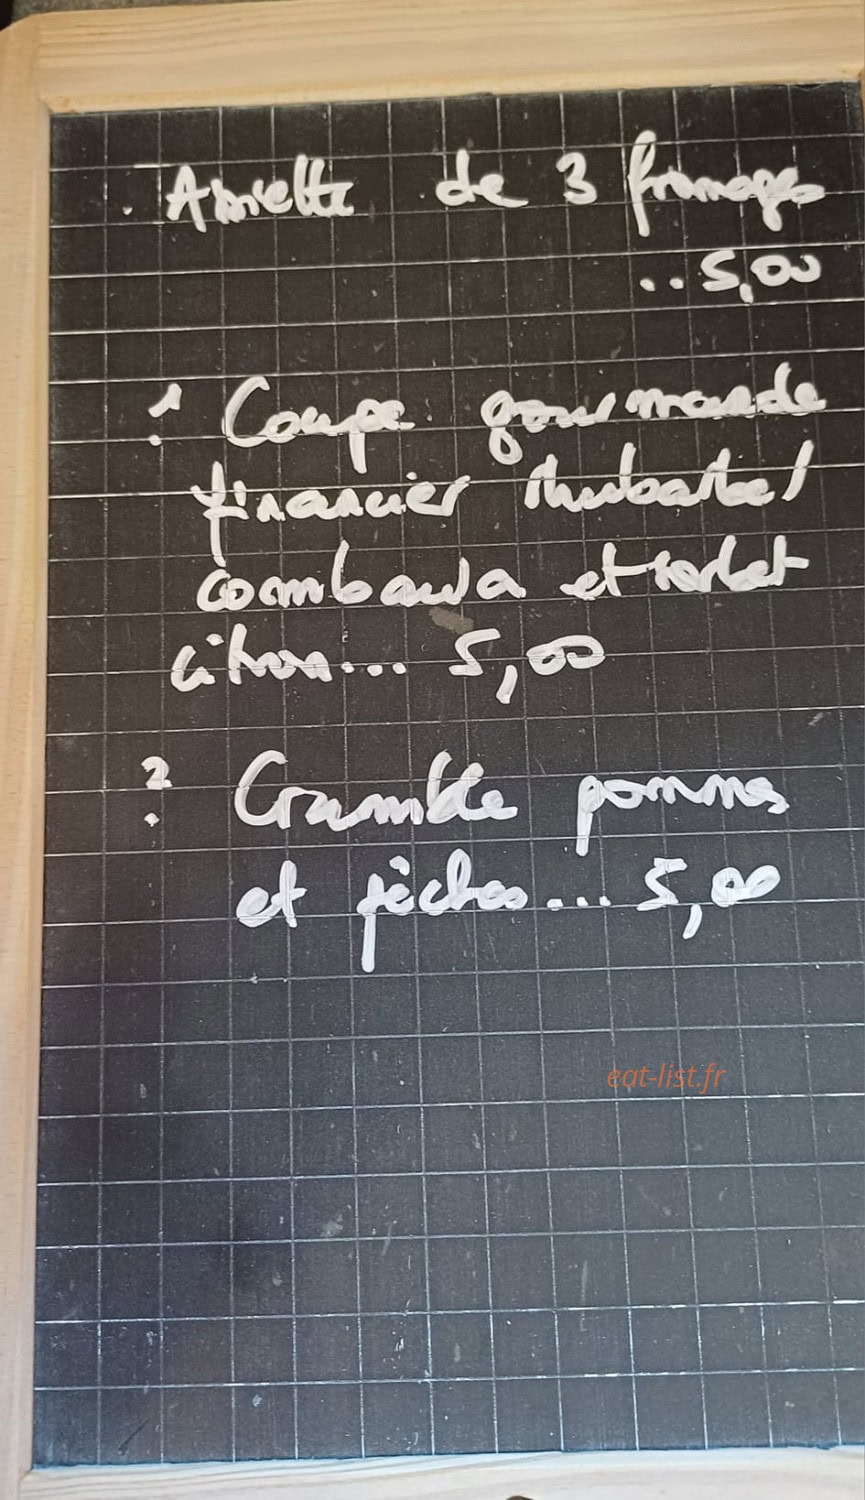 . Assiette de 3 fromages
.. 5,00
1. Coupe gourmande
financier rhubarbe/
combawa et sorbet
citron... 5,00
2. Crumble pommes
et pêches... 5,00
eat-list.fr